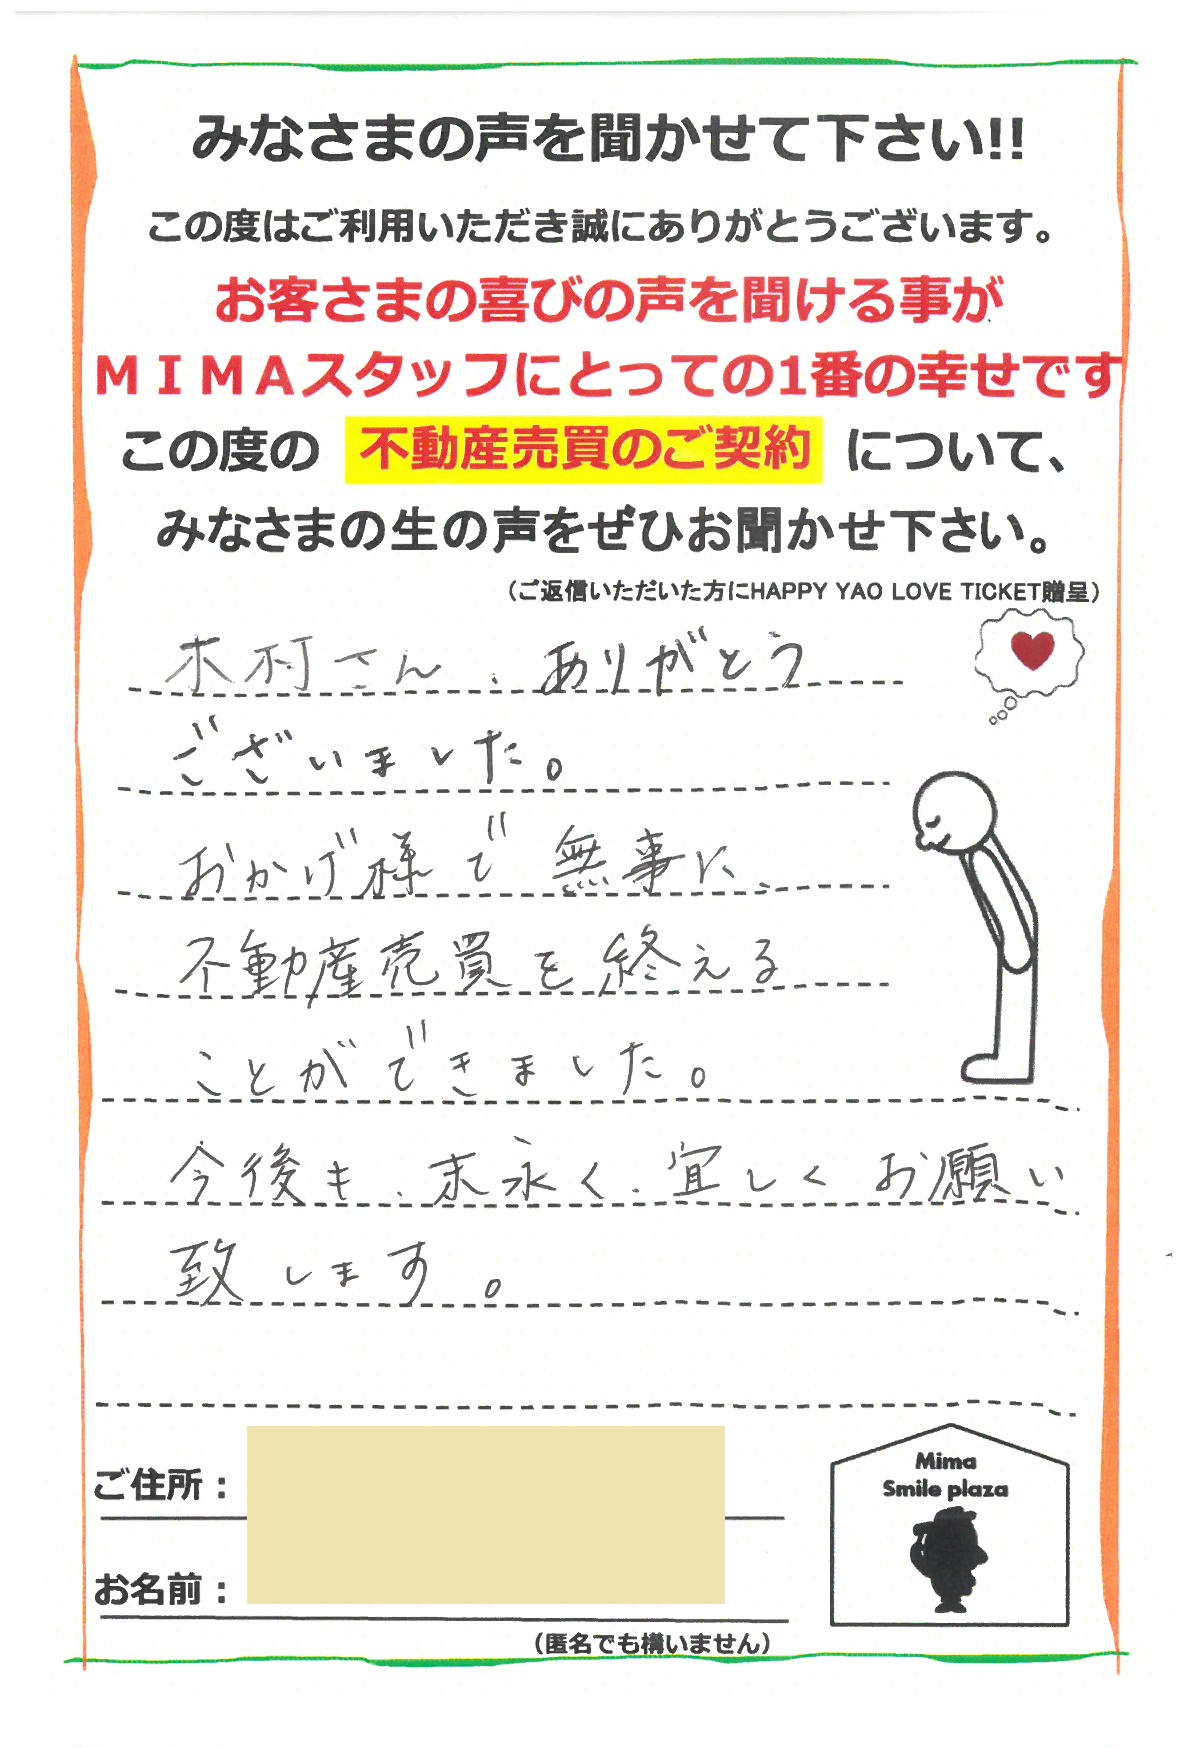 みなさまの声を聞かせて下さい!!
この度はご利用いただき誠にありがとうございます。
お客さまの喜びの声を聞ける事が
ＭＩＭＡスタッフにとっての1番の幸せです
この度の 不動産売買のご契約 について、
みなさまの生の声をぜひお聞かせ下さい。
（ご返信いただいた方にHAPPY YAO LOVE TICKET贈呈）
木村さん、ありがとう
ございました。
おかげ様で無事に、
不動産売買を終える
ことができました。
今後も、末永く、宜しくお願い
致します。
Mima
Smile plaza
ご住所：
お名前：
（匿名でも構いません）